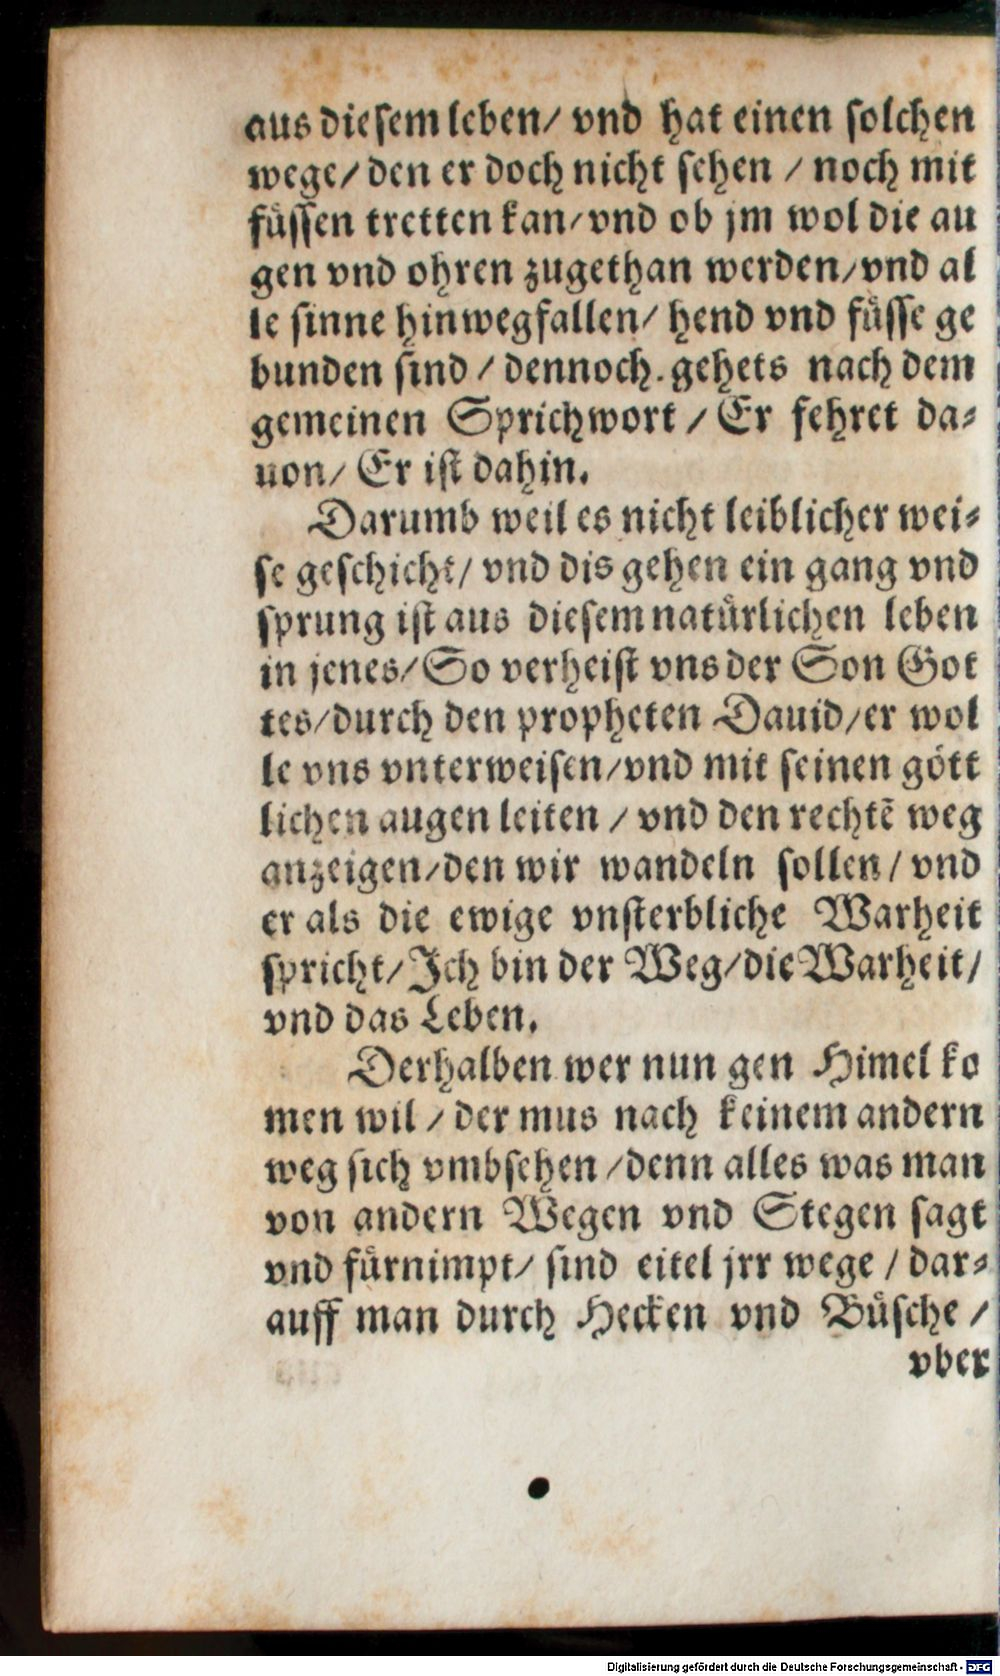 aus dieſem leben/ vnd hat einen ſolchen
wege/ den er doch nicht ſehen / noch mit
fuͤſſen tretten kan/ vnd ob jm wol die au
gen vnd ohren zugethan werden/ vnd al
le ſinne hinwegfallen/ hend vnd fuͤſſe ge
bunden ſind / dennoch. gehets nach dem
gemeinen Sprichwort / Er fehret da⸗
uon/ Er iſt dahin.
Darumb weil es nicht leiblicher wei⸗
ſe geſchicht/ vnd dis gehen ein gang vnd
ſprung iſt aus dieſem natuͤrlichen leben
in jenes/ So verheiſt vns der Son Got
tes/ durch den propheten Dauid/ er wol
le vns vnterweiſen/ vnd mit ſeinen goͤtt
lichen augen leiten / vnd den rechtē weg
anzeigen/ den wir wandeln ſollen/ vnd
er als die ewige vnſterbliche Warheit
ſpricht/ Ich bin der Weg/ die Warheit/
vnd das Leben.
Derhalben wer nun gen Himel ko
men wil / der mus nach keinem andern
weg ſich vmbſehen / denn alles was man
von andern Wegen vnd Stegen ſagt
vnd fuͤrnimpt/ ſind eitel jrr wege / dar⸗
auff man durch Hecken vnd Buͤſche /
vber
Digitalisierung gefördert durch die Deutsche Forschungsgemeinschaft - DFG